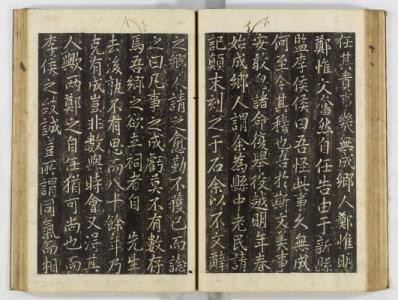 任其責事幾無成鄉人鄭惟明
鄭惟人奮然自任告由于新縣
監李侯侯曰吾怪此事久無成
何至今其稽也吾於斯文美事
安敢勿諾命復興役越明年春
始成鄉人謂余為縣中老民請
記顛末刻之于石余以不文辭
之鄉人請之愈勤不獲已而諗
之曰凡事之成虧莫不有數存
焉吾鄉之欲立祠者自 先生
去後孰不有思而八十餘年乃
克有成豈非數與時會又得其
人歟兩鄭之自任猶可尚也而
李侯之致誠豈所謂同氣而相